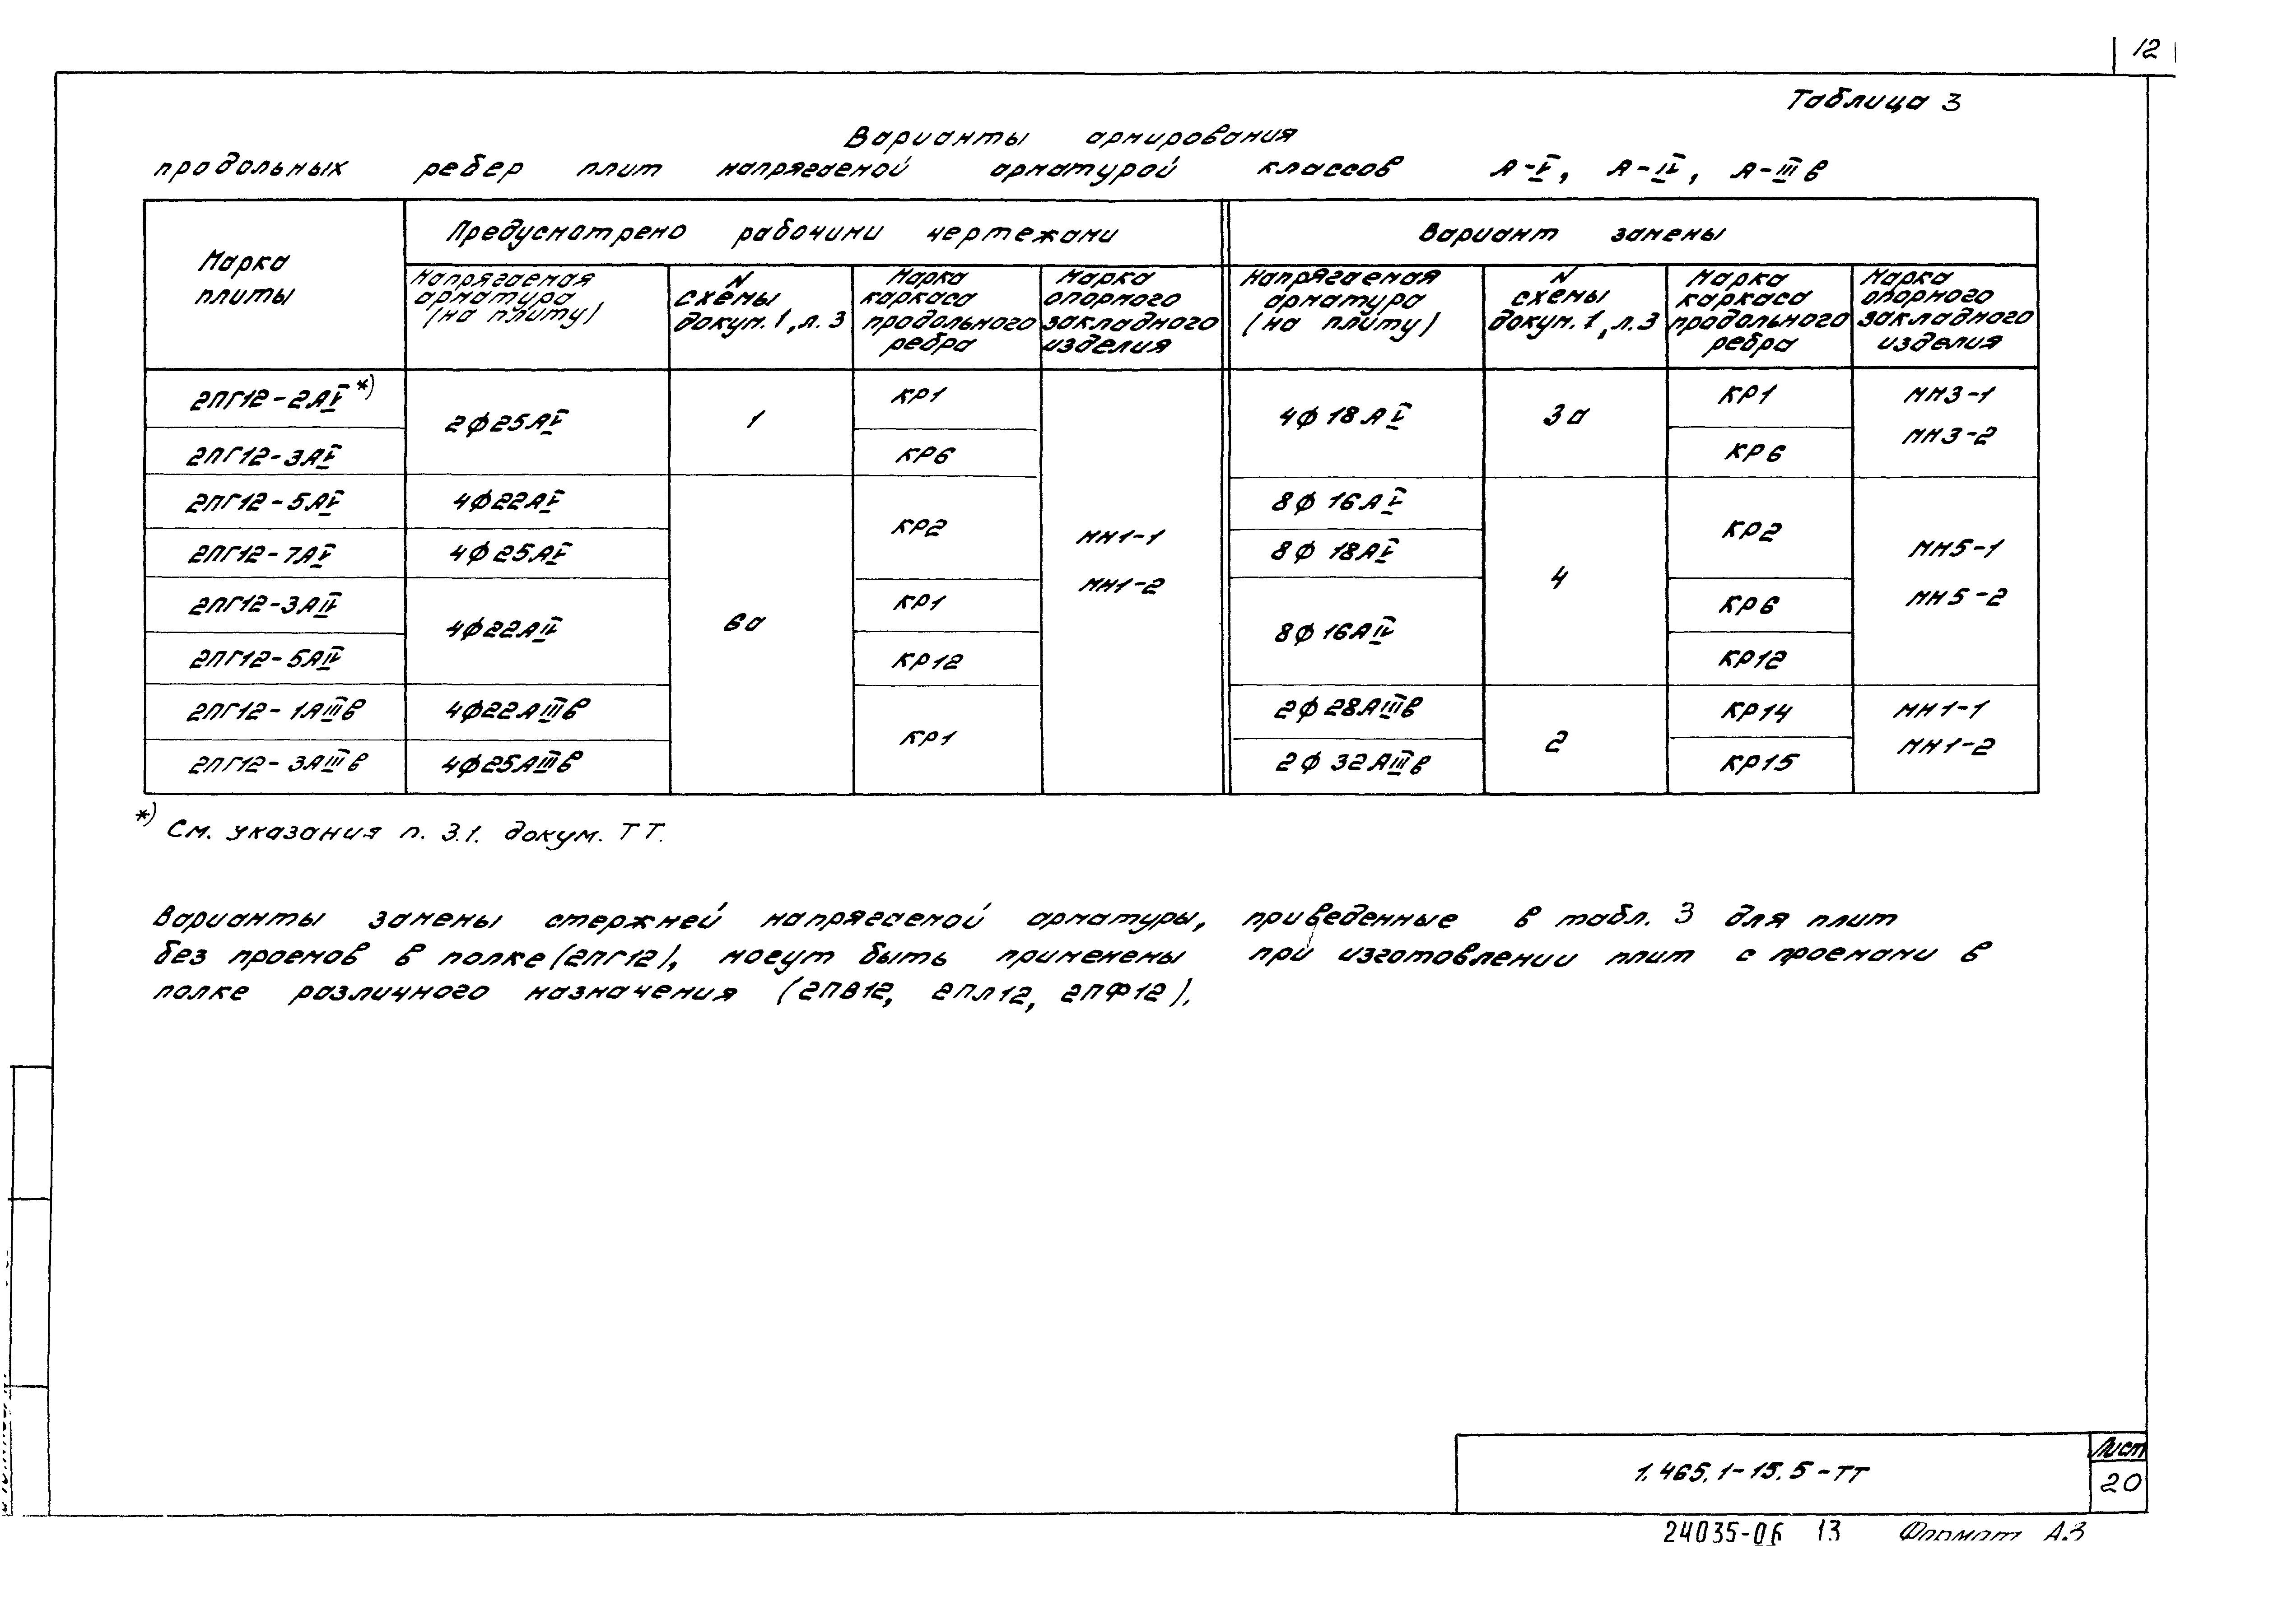 12
Таблица 3
Варианты армирования
продольных ребер плит напрягаемой арматурой классов А-V, А-IV, А-IIIв
Марка плиты
Предусмотрено рабочими чертежами
Вариант замены
Напрягаемая арматура (на плиту)
N схемы докум. 1, л. 3
Марка каркаса продольного ребра
Марка опорного закладного изделия
Напрягаемая арматура (на плиту)
N схемы докум. 1, л. 3
Марка каркаса продольного ребра
Марка опорного закладного изделия
2ПГ12-2АV *)
2ф25АV
1
КР1
4ф18АV
3а
КР1
МН3-1
МН3-2
2ПГ12-3АV
КР6
КР6
2ПГ12-5АV
4ф22АV
6а
КР2
МН1-1
МН1-2
8ф16АV
4
КР2
МН5-1
МН5-2
2ПГ12-7АV
4ф25АV
8ф18АV
2ПГ12-3АIV
4ф22АIV
КР1
8ф16АIV
КР6
2ПГ12-5АIV
КР12
КР12
2ПГ12-1АIIIв
4ф22АIIIв
КР1
2ф28АIIIв
2
КР14
МН1-1
МН1-2
2ПГ12-3АIIIв
4ф25АIIIв
2ф32АIIIв
КР15
*) См. указания п. 3.1. докум. ТТ.
Варианты замены стержней напрягаемой арматуры, приведенные в табл. 3 для плит
без проемов в полке (2ПГ12), могут быть применены при изготовлении плит с проемами в
полке различного назначения (2ПВ12, 2ПЛ12, 2ПФ12).
1.465.1-15.5-ТТ
Лист
20
24035-06 13 Формат А3